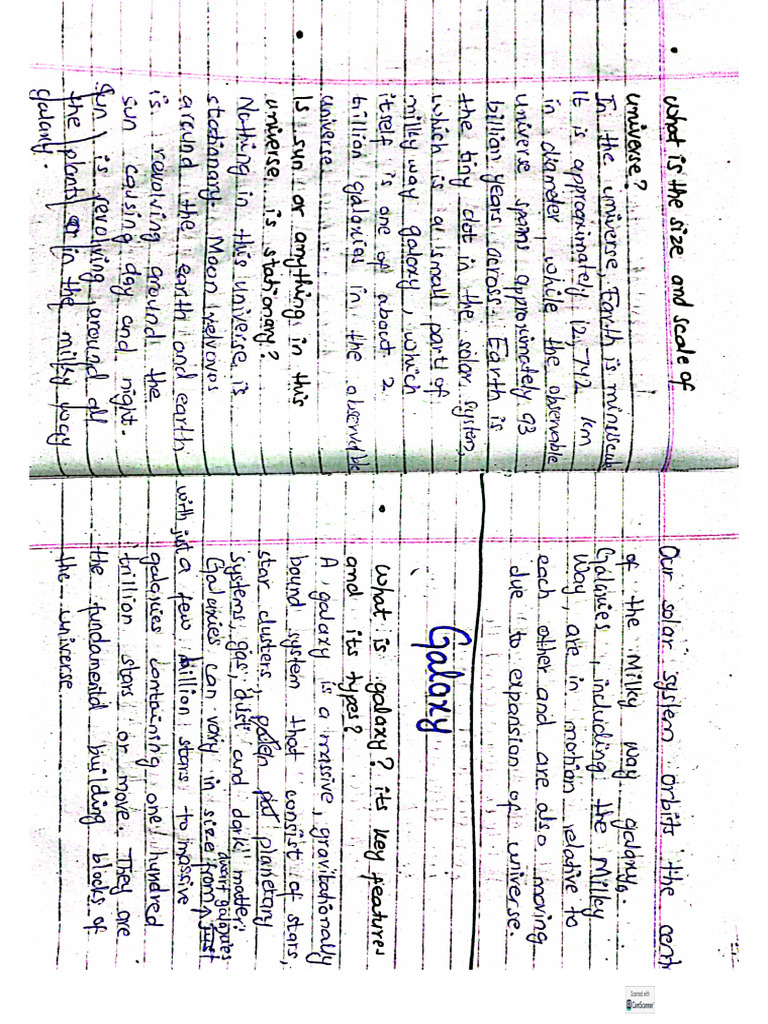 • What is the size and scale of
universe?
In the universe, Earth is minisculs
It is approximately 12,742 km
in diameter, while the observable
universe spans approximately 93
billion years across. Earth is
the tiny dot in the solar system,
which is a small part of
milky way galaxy, which
itself is one of about 2
trillion galaxies in the observable
universe.
• Is sun or anything in this
universe is stationary?
Nothing in this universe is
stationary. Moon velvoves
around the earth and earth
is revolving around the
sun causing day and night.
Sun is revolving around all
the plants or in the milky way
galaxy.
Our solar system orbits the centr
of the Milky way galaxy.
Galaxies, including the Milley
Way, are in motion relative to
each other and are also moving
due to expansion of universe.
Galaxy
• What is galaxy? its key features
and its types?
A galaxy is a massive, gravitationally
bound system that consist of stars,
star clusters, planetary
systems, gas, dust and dark matter.
Galaxies can vary in size from dwarf galaxies just
with just a few million stars to massive
galaxies containing one hundred
trillion stars or move. They are
the fundamental building blocks of
the universe.
Scanned with
CamScanner